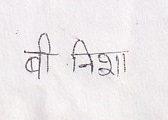 बी निशा